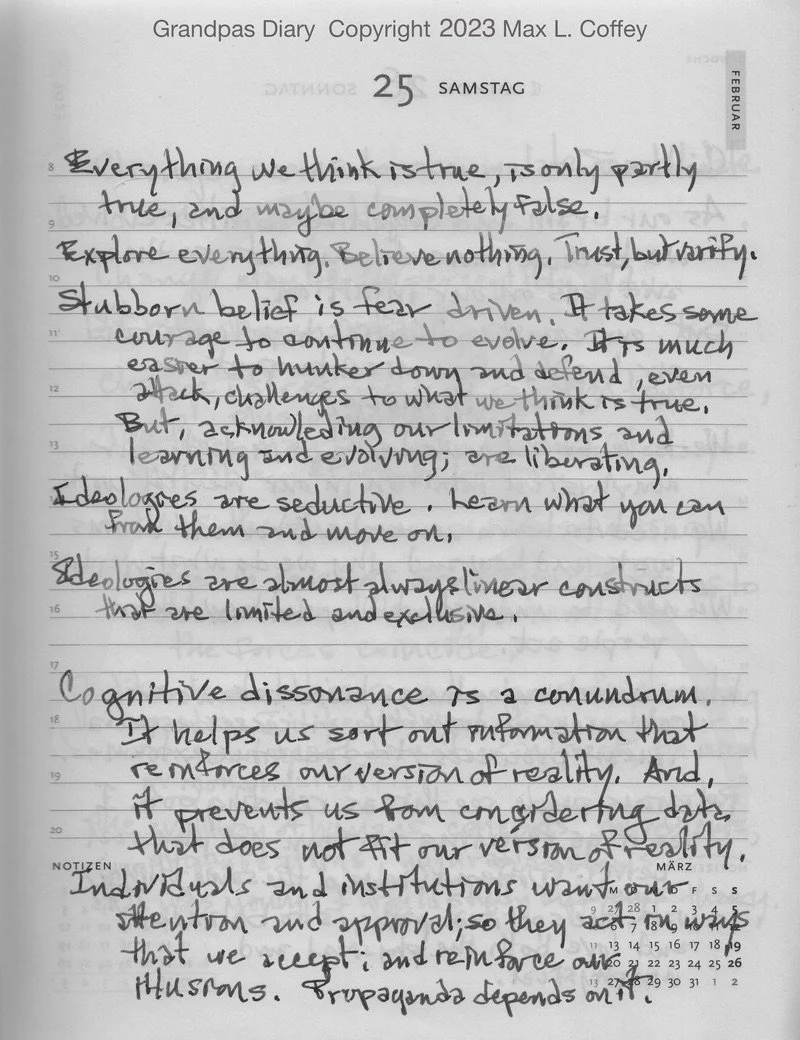 Grandpas Diary Copyright 2023 Max L. Coffey
25 SAMSTAG
FEBRUAR
8 Everything we think is true, is only partly
true, and maybe completely false.
9
Explore everything. Believe nothing. Trust, but varify.
10
Stubborn belief is fear driven. It takes some
11 courage to continue to evolve. It is much
easier to hunker down and defend, even
12 attack, challenges to what we think is true.
But, acknowledging our limitations and
13 learning and evolving; are liberating.
Ideologies are seductive. Learn what you can
from them and move on.
15
Ideologies are almost always linear constructs
16 that are limited and exclusive.
17
Cognitive dissonance is a conundrum.
18 It helps us sort out information that
19 reinforces our version of reality. And,
it prevents us from considering data
20 that does not fit our version of reality.
NOTIZEN MÄRZ
Individuals and institutions want our
attention and approval; so they act in ways
that we accept; and reinforce our
illusions. Propaganda depends on it.
M F S S
9 27 28 1 2 3 4 5
6 7 8
11 13 14 15 16 17 18 19
20 21 22 23 24 25 26
13 27 28 29 30 31 1 2